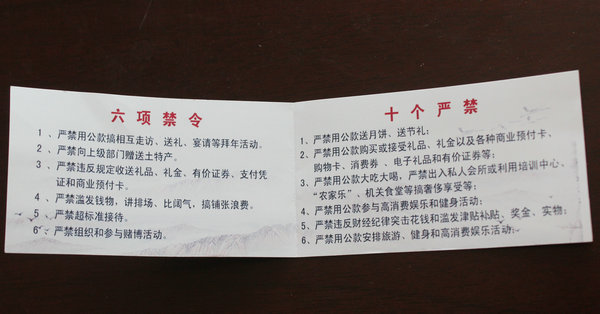 六项禁令
1、严禁用公款搞相互走访、送礼、宴请等拜年活动。
2、严禁向上级部门赠送土特产。
3、严禁违反规定收送礼品、礼金、有价证券、支付凭
证和商业预付卡。
4、严禁滥发钱物，讲排场、比阔气，搞铺张浪费。
5、严禁超标准接待。
6、严禁组织和参与赌博活动。
十个严禁
1、严禁用公款送月饼、送节礼；
2、严禁用公款购买或接受礼品、礼金以及各种商业预付卡、
购物卡、消费券、电子礼品和有价证券等；
3、严禁用公款大吃大喝，严禁出入私人会所或利用培训中心、
“农家乐”、机关食堂等搞奢侈享受等；
4、严禁用公款参与高消费娱乐和健身活动；
5、严禁违反财经纪律突击花钱和滥发津贴补贴、奖金、实物；
6、严禁用公款安排旅游、健身和高消费娱乐活动；